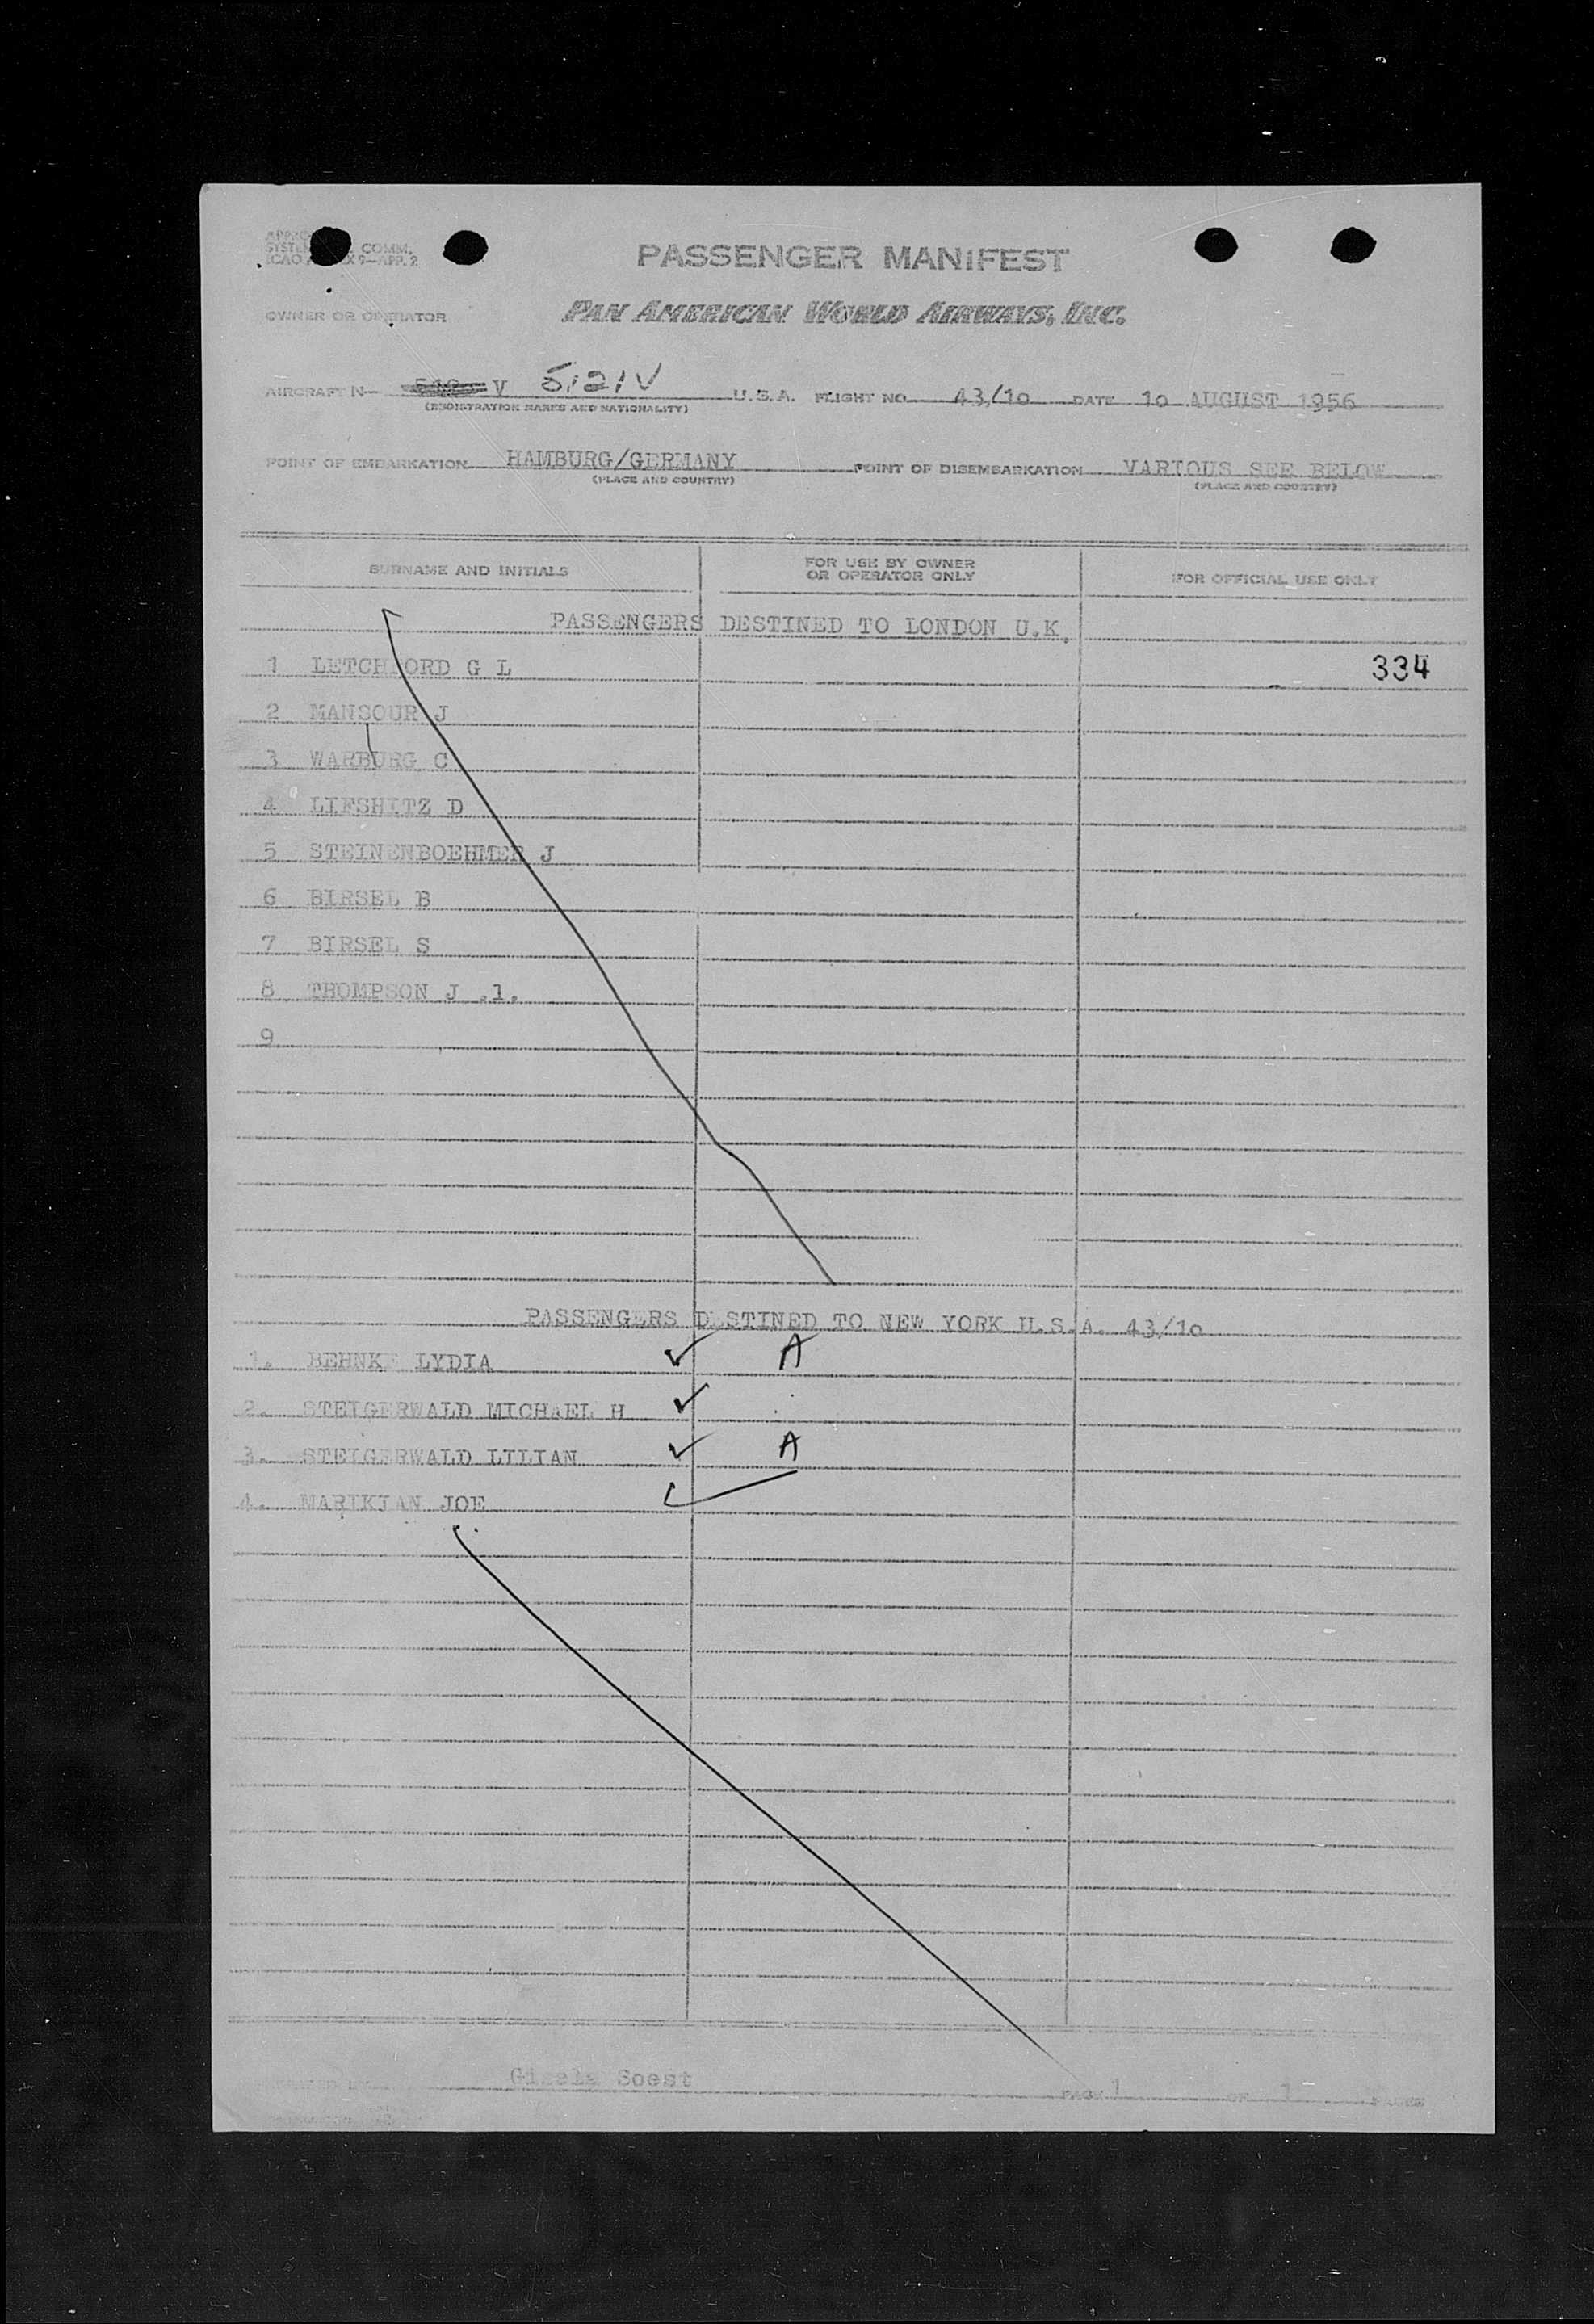 PASSENGER MANIFEST
COMM.
ICAO 9—APP. 2
OWNER OR OPERATOR
PAN AMERICAN WORLD AIRWAYS, INC.
AIRCRAFT N— V 5121V U.S.A. FLIGHT NO. 43/10 DATE 10 AUGUST 1956
(REGISTRATION MARKS AND NATIONALITY)
POINT OF EMBARKATION HAMBURG/GERMANY POINT OF DISEMBARKATION VARIOUS SEE BELOW
(PLACE AND COUNTRY) (PLACE AND COUNTRY)
SURNAME AND INITIALS FOR USE BY OWNER OR OPERATOR ONLY FOR OFFICIAL USE ONLY
PASSENGERS DESTINED TO LONDON U.K.
1 LETCHFORD G L 334
2 MANSOUR J
3 WARBURG C
4 LIFSHITZ D
5 STEINENBOEHMER J
6 BIRSEL B
7 BIRSEL S
8 THOMPSON J .l.
9
PASSENGERS DESTINED TO NEW YORK U.S.A. 43/10
1. BEHNKE LYDIA ✓ A
2. STEIGERWALD MICHAEL H ✓
3. STEIGERWALD LILIAN ✓ A
4. MARIKIAN JOE ✓
Gisela Soest
PAGE 1 OF 1 PAGES